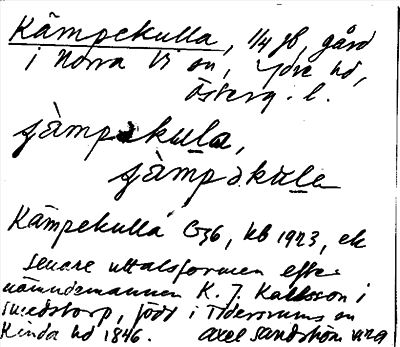 Kämpekulla, 1/4 jb, gård
i Norra Vi sn, Ydre hd,
Österg. l.
Kämpekulla G36, kb 1923, ek
senare uttalsformen efter
nämndemannen K. J. Karlsson i
Smedstorp, född i Tidersrums sn
Kinda hd 1846. Axel Sandström